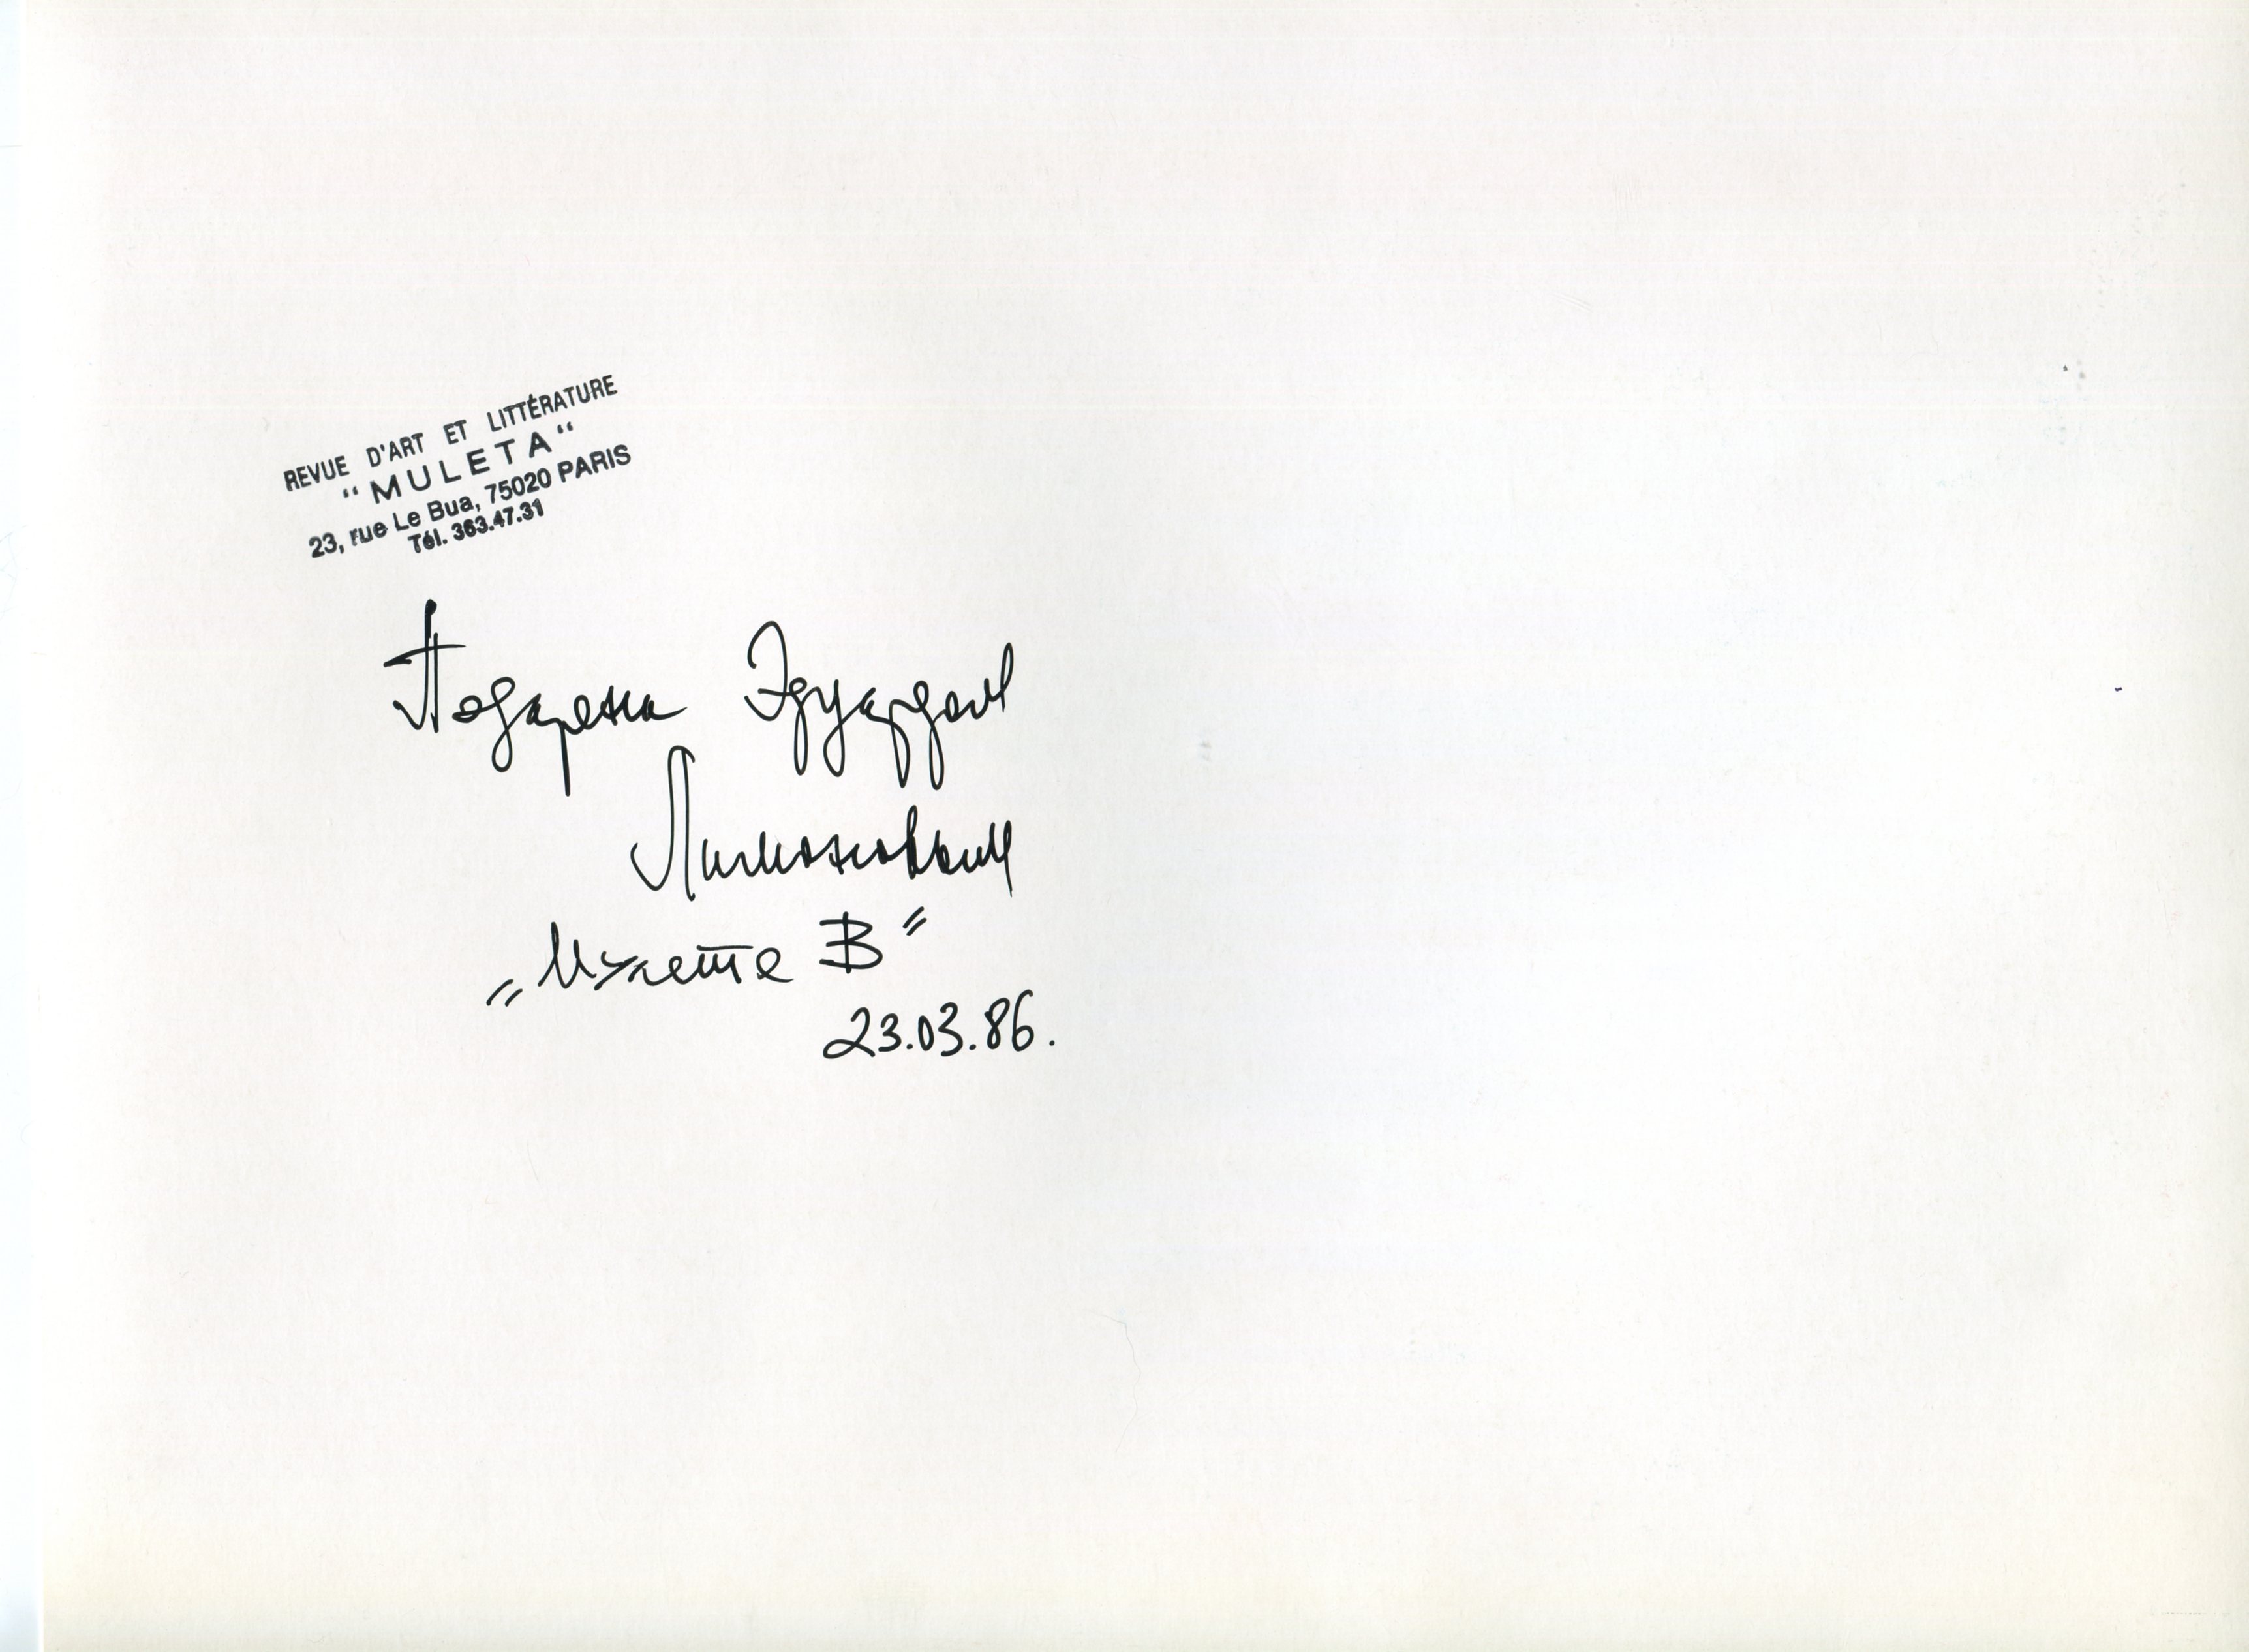 REVUE D'ART ET LITTÉRATURE
“MULETA“
23, rue Le Bua, 75020 PARIS
Tél. 363.47.31
Подарена Эдуардом
Лимоновым
„Мулете В"
23.03.86.